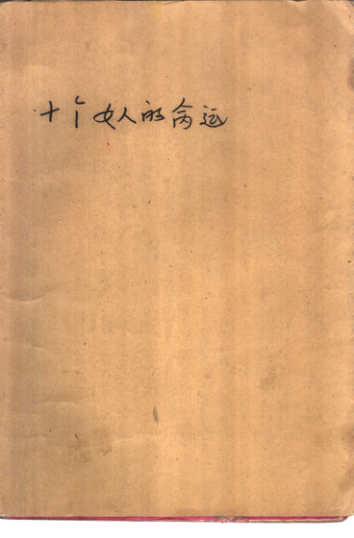 十个女人的命运